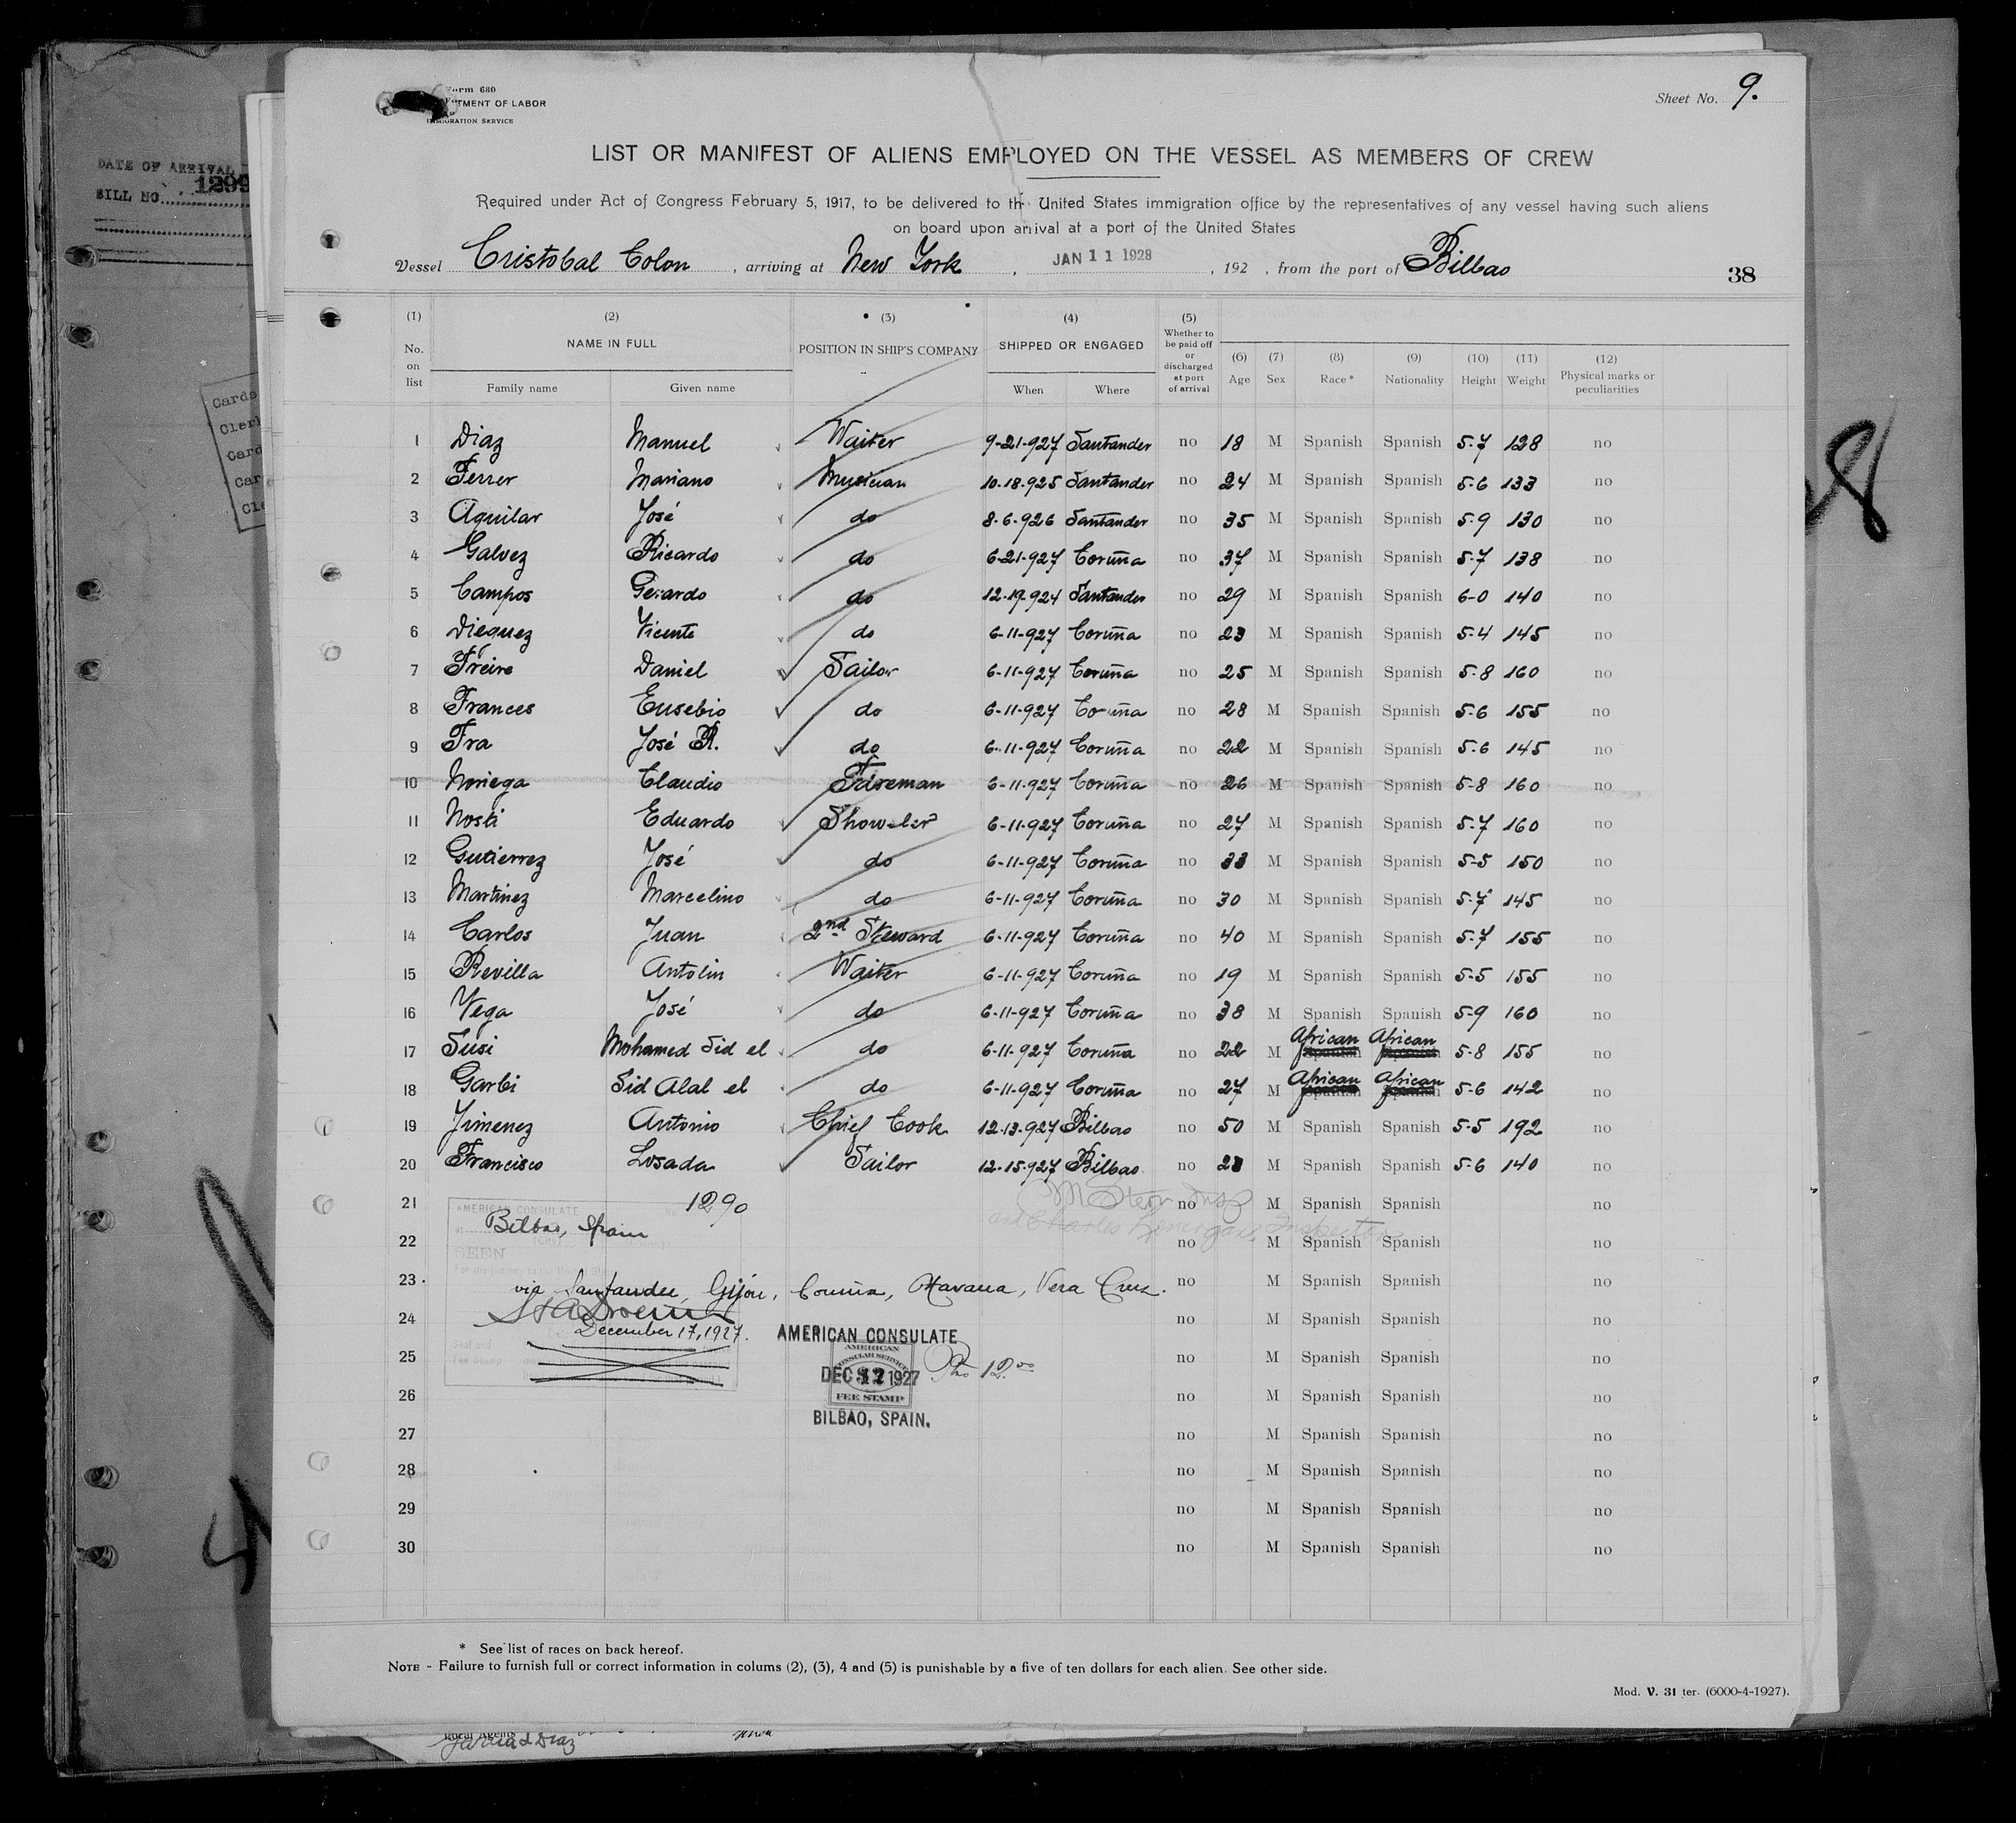 Form 680
DEPARTMENT OF LABOR
IMMIGRATION SERVICE
Sheet No. 9.
DATE OF ARRIVAL
BILL NO. 1299
LIST OR MANIFEST OF ALIENS EMPLOYED ON THE VESSEL AS MEMBERS OF CREW
Required under Act of Congress February 5, 1917, to be delivered to the United States immigration office by the representatives of any vessel having such aliens
on board upon arrival at a port of the United States
Vessel Cristobal Colon, arriving at New York, JAN 11 1928, 192 , from the port of Bilbao 38
(1) (2) (3) (4) (5)
No. on list NAME IN FULL POSITION IN SHIP'S COMPANY SHIPPED OR ENGAGED Whether to be paid off or discharged at port of arrival (6) Age (7) Sex (8) Race* (9) Nationality (10) Height (11) Weight (12) Physical marks or peculiarities
Family name Given name When Where
1 Diaz Manuel Waiter 9-21-927 Santander no 18 M Spanish Spanish 5-7 128 no
2 Ferrer Mariano Musician 10-18-925 Santander no 24 M Spanish Spanish 5-6 133 no
3 Aguilar José do 8-6-926 Santander no 35 M Spanish Spanish 5-9 130 no
4 Galvez Ricardo do 6-21-927 Coruña no 37 M Spanish Spanish 5-7 138 no
5 Campos Gerardo do 12-19-924 Santander no 29 M Spanish Spanish 6-0 140 no
6 Dieguez Vicente do 6-11-927 Coruña no 23 M Spanish Spanish 5-4 145 no
7 Freire Daniel Sailor 6-11-927 Coruña no 25 M Spanish Spanish 5-8 160 no
8 Frances Eusebio do 6-11-927 Coruña no 28 M Spanish Spanish 5-6 155 no
9 Fra José R. do 6-11-927 Coruña no 22 M Spanish Spanish 5-6 145 no
10 Noriega Claudio Fireman 6-11-927 Coruña no 26 M Spanish Spanish 5-8 160 no
11 Nosti Eduardo Showeler 6-11-927 Coruña no 27 M Spanish Spanish 5-7 160 no
12 Gutierrez José do 6-11-927 Coruña no 33 M Spanish Spanish 5-5 150 no
13 Martinez Marcelino do 6-11-927 Coruña no 30 M Spanish Spanish 5-7 145 no
14 Carlos Juan 2nd Steward 6-11-927 Coruña no 40 M Spanish Spanish 5-7 155 no
15 Revilla Antolin Waiter 6-11-927 Coruña no 19 M Spanish Spanish 5-5 155 no
16 Vega José do 6-11-927 Coruña no 38 M Spanish Spanish 5-9 160 no
17 Susi Mohamed Sid el do 6-11-927 Coruña no 22 M African African 5-8 155 no
18 Garbi Sid Alal el do 6-11-927 Coruña no 27 M African African 5-6 142 no
19 Jimenez Antonio Chief Cook 12-13-927 Bilbao no 50 M Spanish Spanish 5-5 192 no
20 Francisco Losada Sailor 12-15-927 Bilbao no 28 M Spanish Spanish 5-6 140 no
21 AMERICAN CONSULATE 1290 no M Spanish Spanish no
Bilbao, Spain
22 SEEN no M Spanish Spanish no
23 via Santander, Gijón, Coruña, Havana, Vera Cruz. no M Spanish Spanish no
24 no M Spanish Spanish no
December 17, 1927.
AMERICAN CONSULATE
25 no M Spanish Spanish no
AMERICAN CONSULAR SERVICE
DEC 17 1927 12.00
FEE STAMP
26 no M Spanish Spanish no
BILBAO, SPAIN.
27 no M Spanish Spanish no
28 no M Spanish Spanish no
29 no M Spanish Spanish no
30 no M Spanish Spanish no
* See list of races on back hereof.
NOTE - Failure to furnish full or correct information in colums (2), (3), 4 and (5) is punishable by a five of ten dollars for each alien. See other side.
Mod. V. 31 ter. (6000-4-1927).
Garcia & Diaz